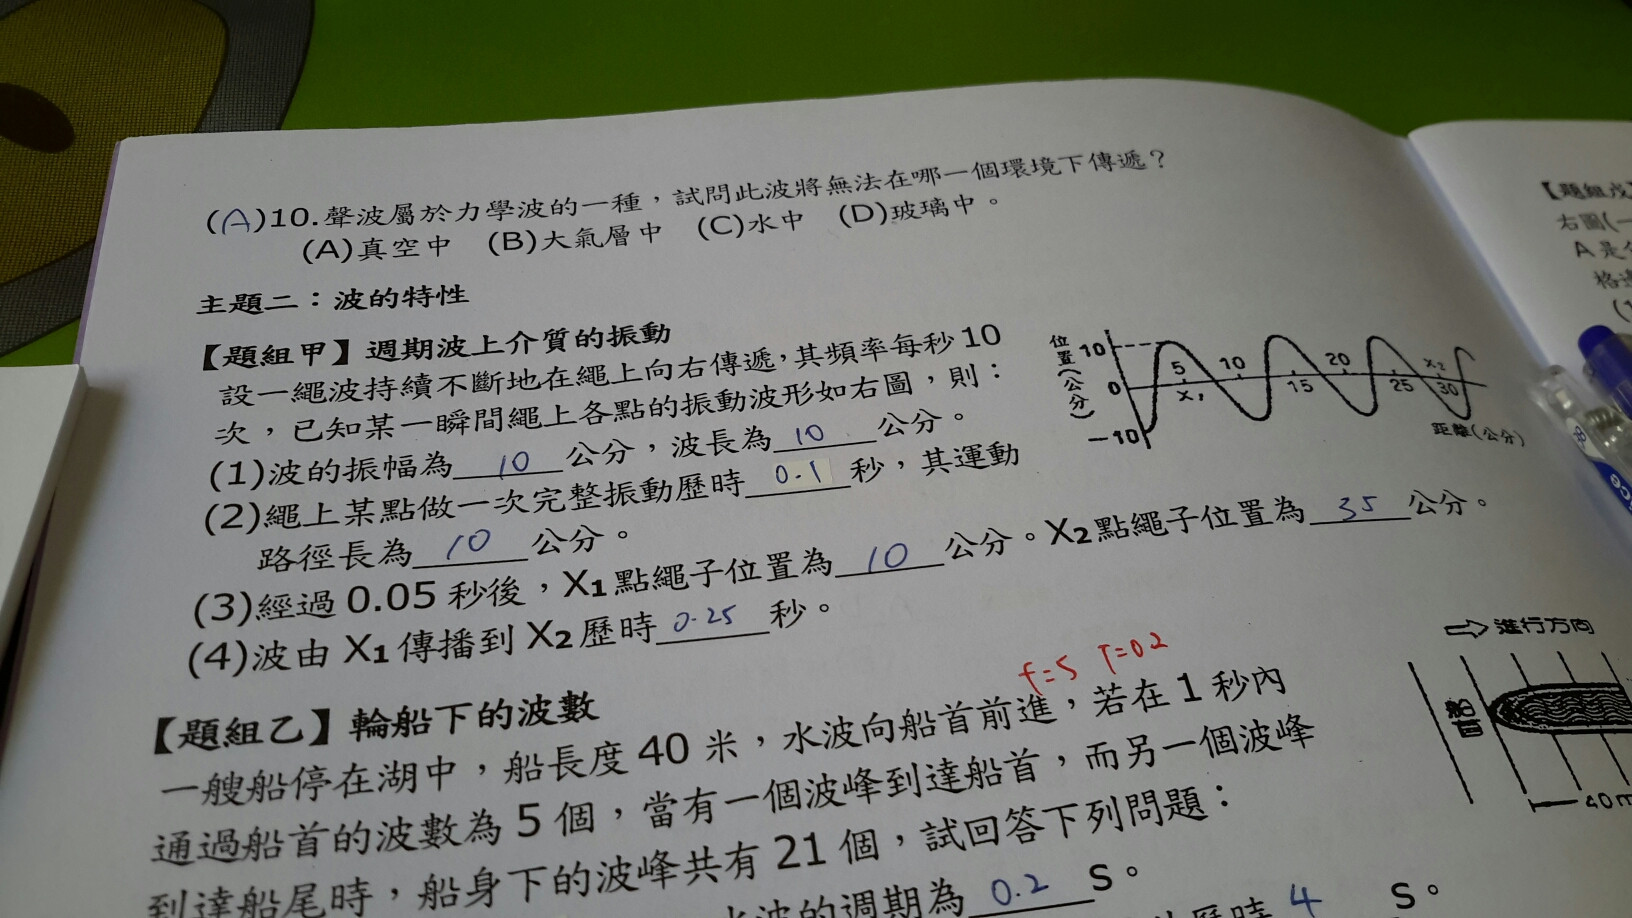 (A)10.聲波屬於力學波的一種，試問此波將無法在哪一個環境下傳遞？
(A)真空中 (B)大氣層中 (C)水中 (D)玻璃中。
主題二：波的特性
【題組甲】週期波上介質的振動
設一繩波持續不斷地在繩上向右傳遞，其頻率每秒10
次，已知某一瞬間繩上各點的振動波形如右圖，則：
(1)波的振幅為10公分，波長為10公分。
(2)繩上某點做一次完整振動歷時0.1秒，其運動
路徑長為10公分。
(3)經過0.05秒後，X₁點繩子位置為10公分。X₂點繩子位置為35公分。
(4)波由X₁傳播到X₂歷時0.25秒。
位置(公分)
10
0
-10
5
10
15
20
25
30
X₁
X₂
距離(公分)
f=5 T=0.2
【題組乙】輪船下的波數
一艘船停在湖中，船長度40米，水波向船首前進，若在1秒內
通過船首的波數為5個，當有一個波峰到達船首，而另一個波峰
到達船尾時，船身下的波峰共有21個，試回答下列問題：
水波的週期為0.2 S。
歷時4 S。
⇨進行方向
船首
40m
【題組戊】
右圖(一
A是
(1